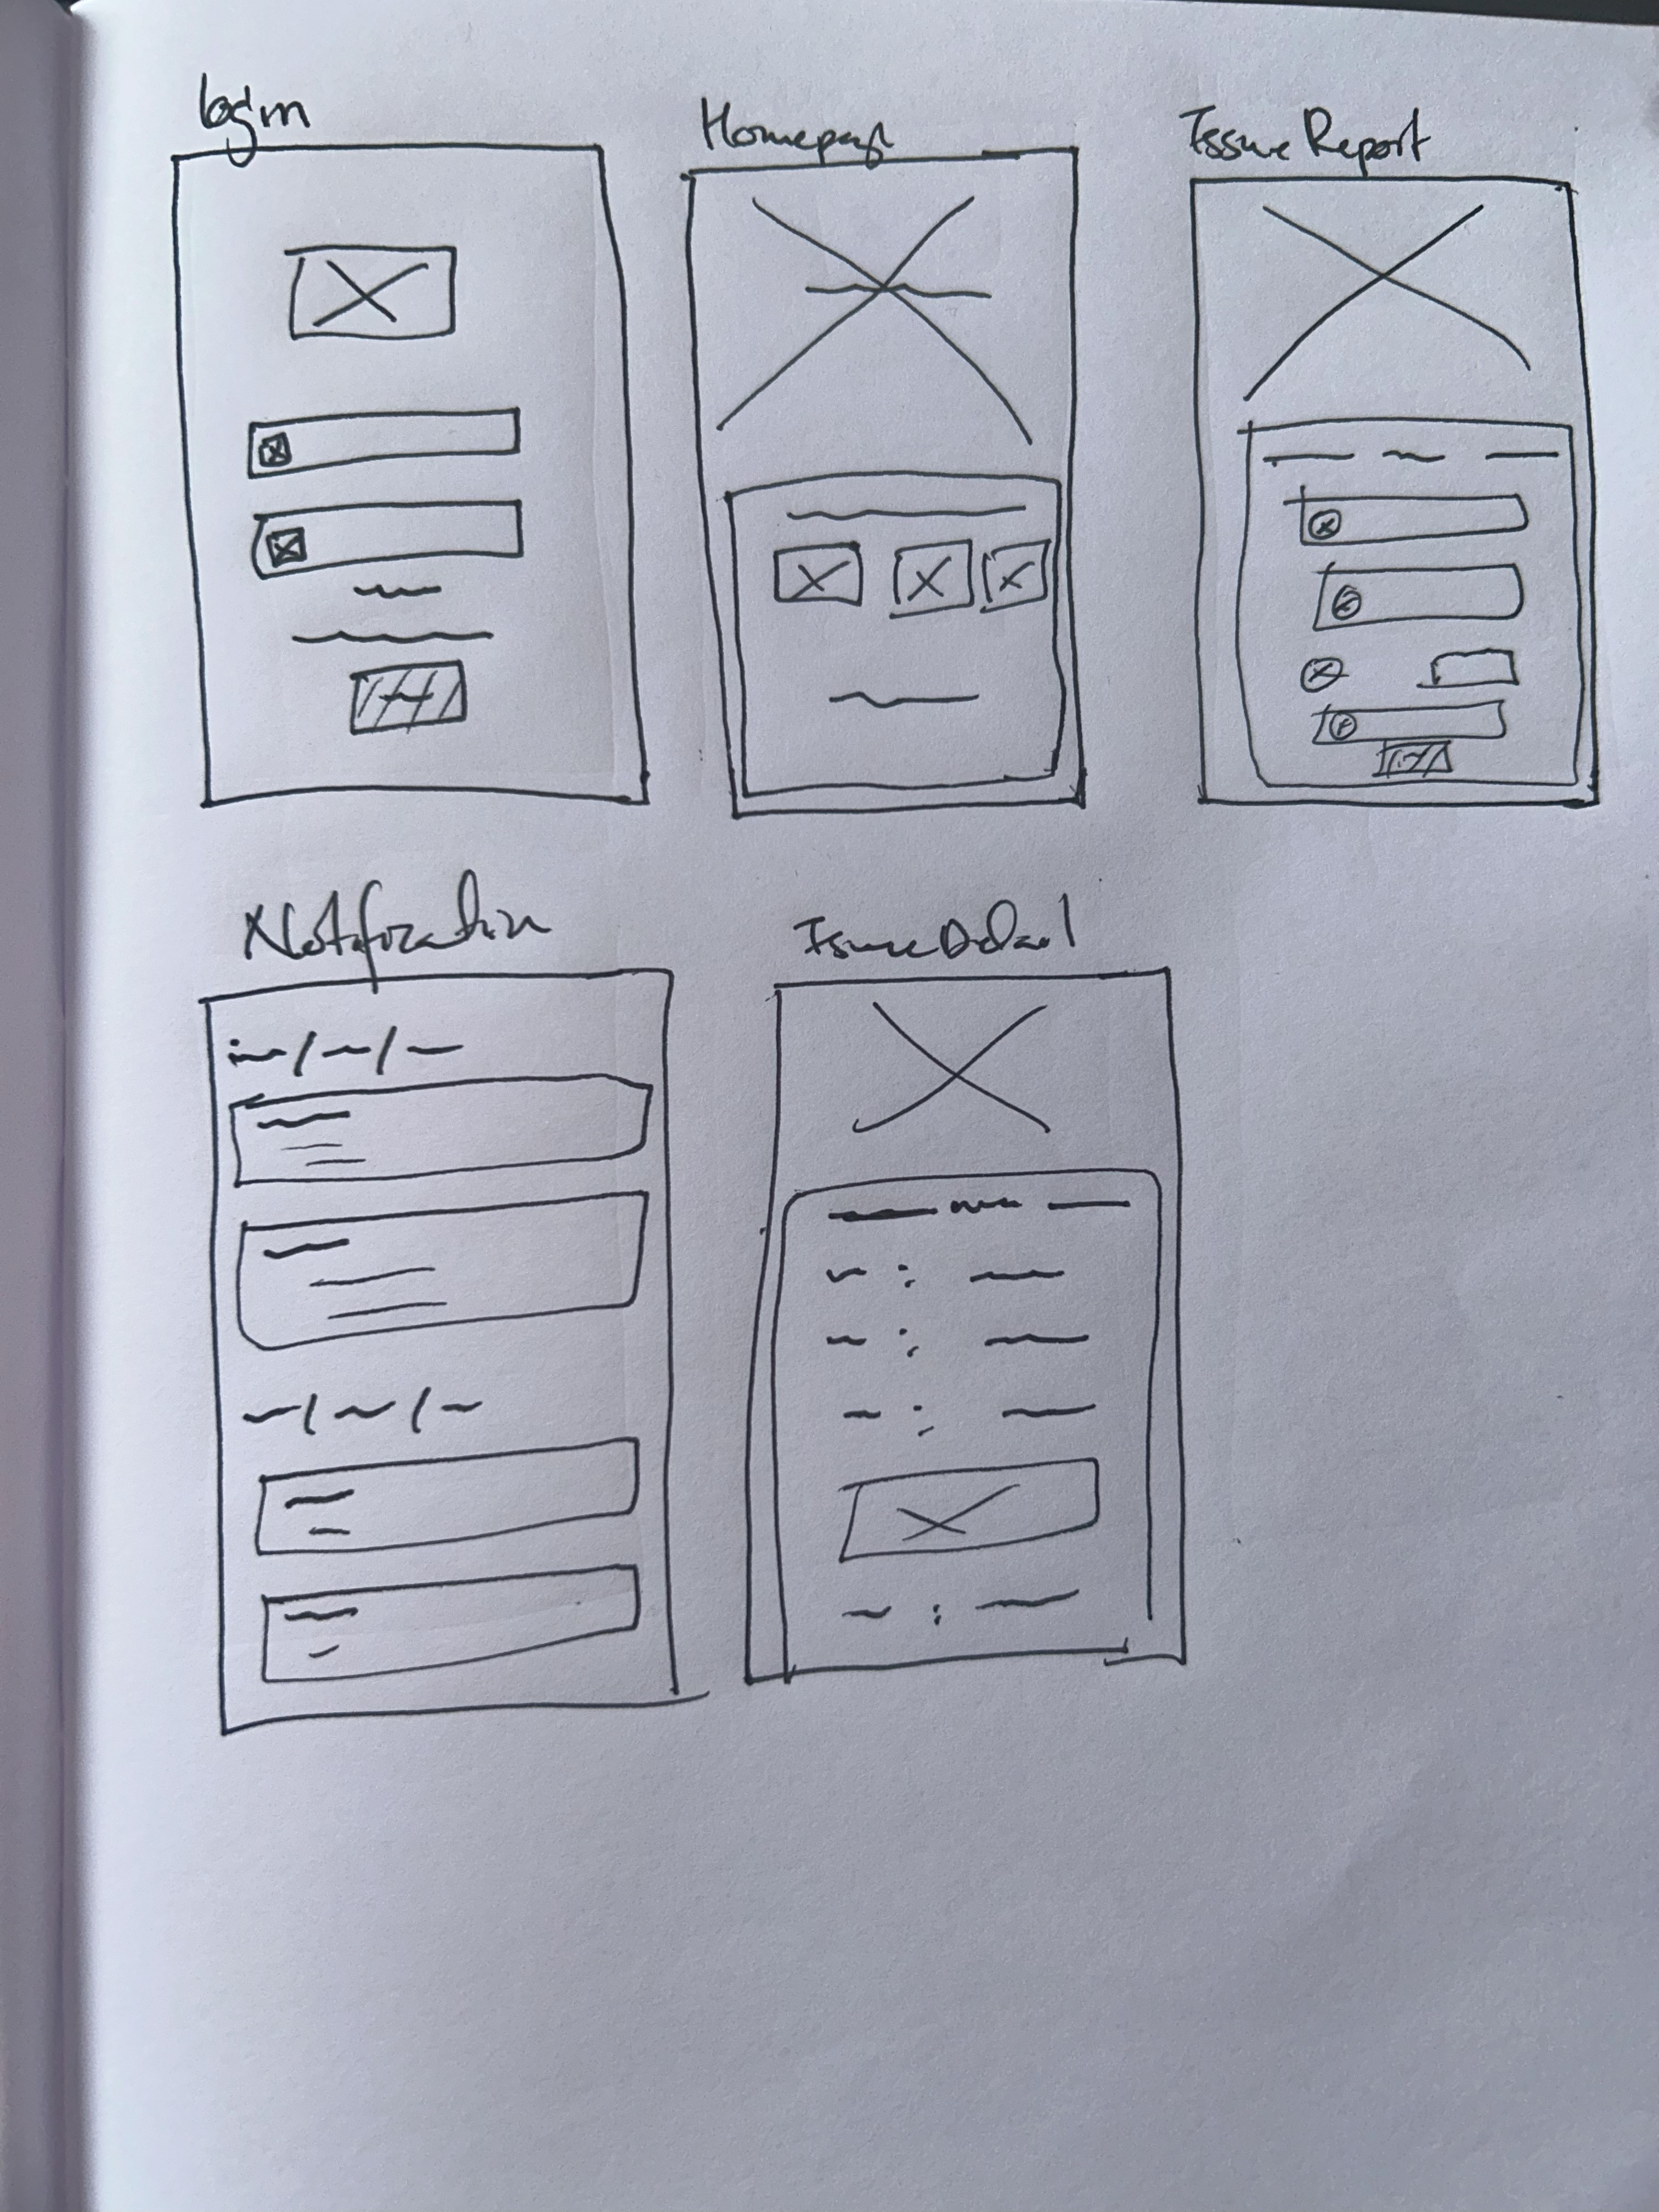 login
Homepage
Issue Report
Notification
Issue Detail